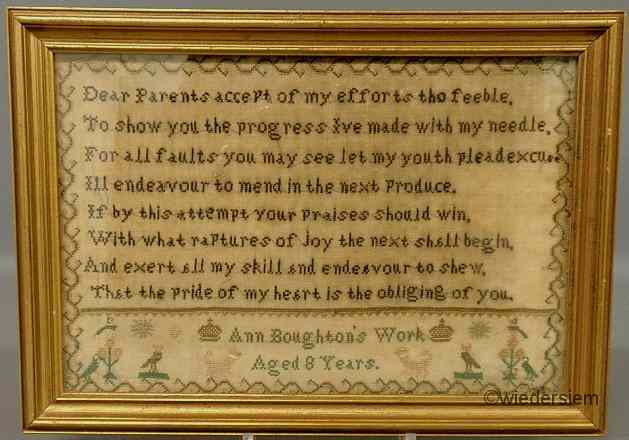 Dear Parents accept of my efforts tho feeble,
To show you the progress Ive made with my needle,
For all faults you may see let my youth plead excuse
Ill endeavour to mend in the next produce.
If by this attempt your praises should win,
With what raptures of Joy the next shall begin,
And exert all my skill and endeavour to shew,
That the pride of my heart is the obliging of you.
Ann Boughton's Work
Aged 8 Years.
©wiedersiem